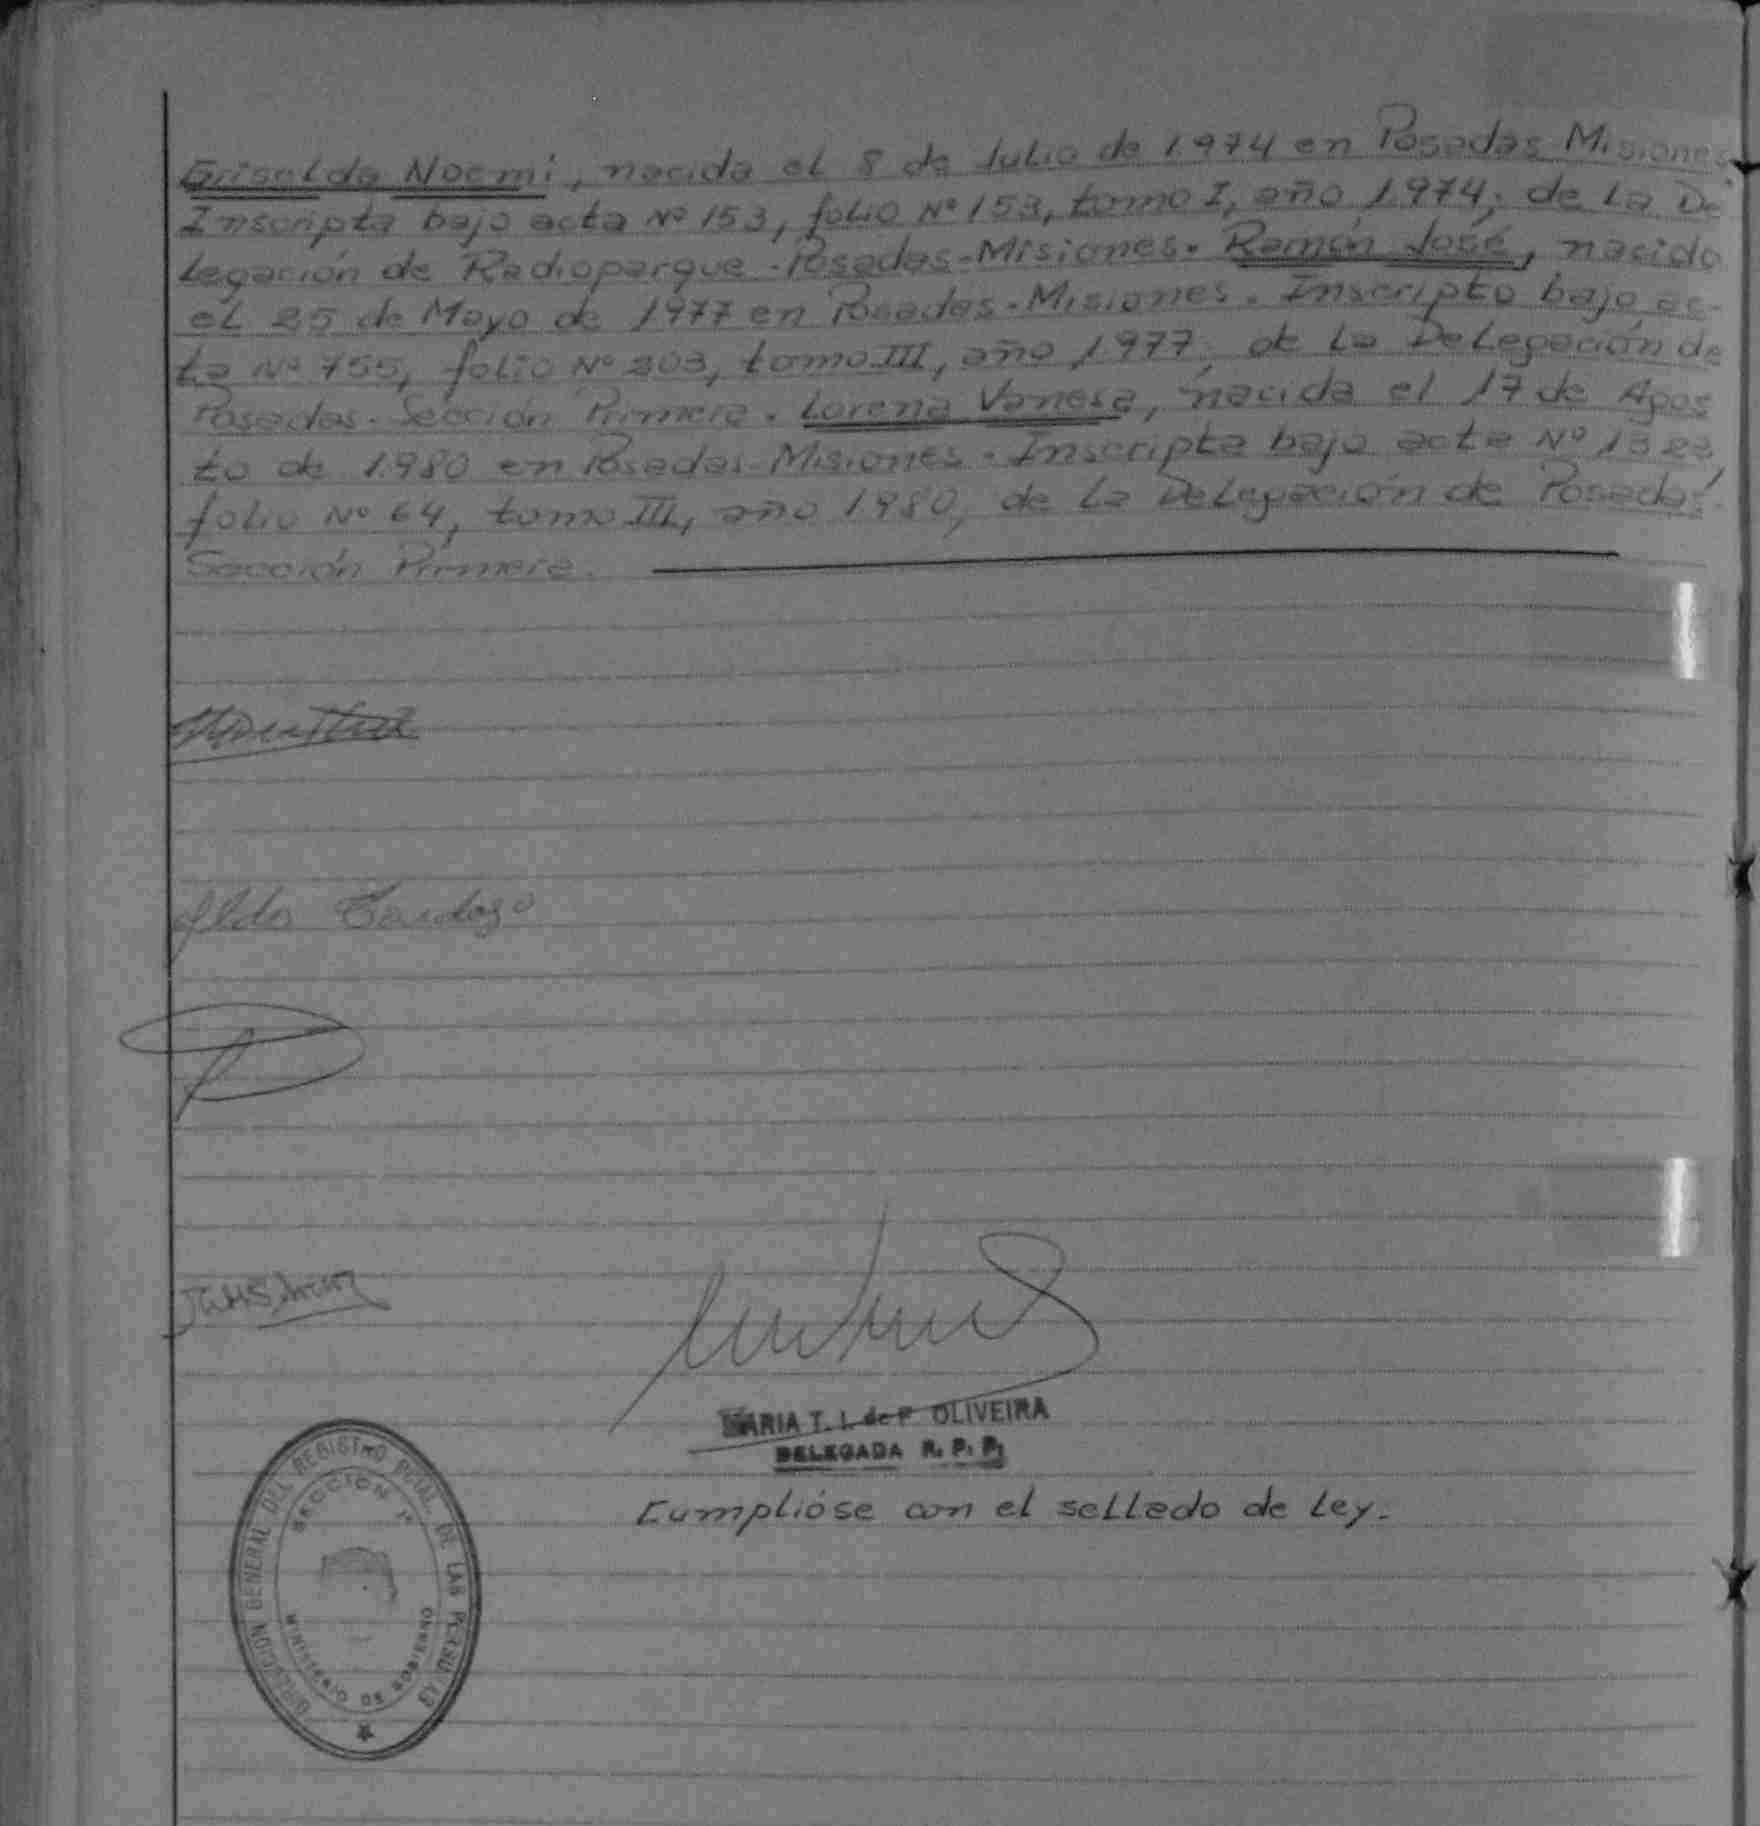 Griselda Noemi, nacida el 8 de Julio de 1974 en Posadas Misiones
Inscripta bajo acta Nº 153, folio Nº 153, tomo I, año 1974, de la De
legación de Radioparque - Posadas - Misiones. Ramón José, nacido
el 25 de Mayo de 1977 en Posadas - Misiones. Inscripto bajo ac-
ta Nº 755, folio Nº 203, tomo III, año 1977, de la Delegación de
Posadas - Sección Primera. Lorena Vanesa, nacida el 17 de Agos
to de 1980 en Posadas - Misiones. Inscripta bajo acta Nº
folio Nº 64, tomo III, año 1980, de la Delegación de Posadas
Sección Primera.
Cardozo
MARIA T. I. de P OLIVEIRA
DELEGADA R. P. P.
Cumplióse con el sellado de Ley.
DIRECCION GENERAL DEL REGISTRO PCIAL. DE LAS PERSONAS
SECCION 1ª
MINISTERIO DE GOBIERNO